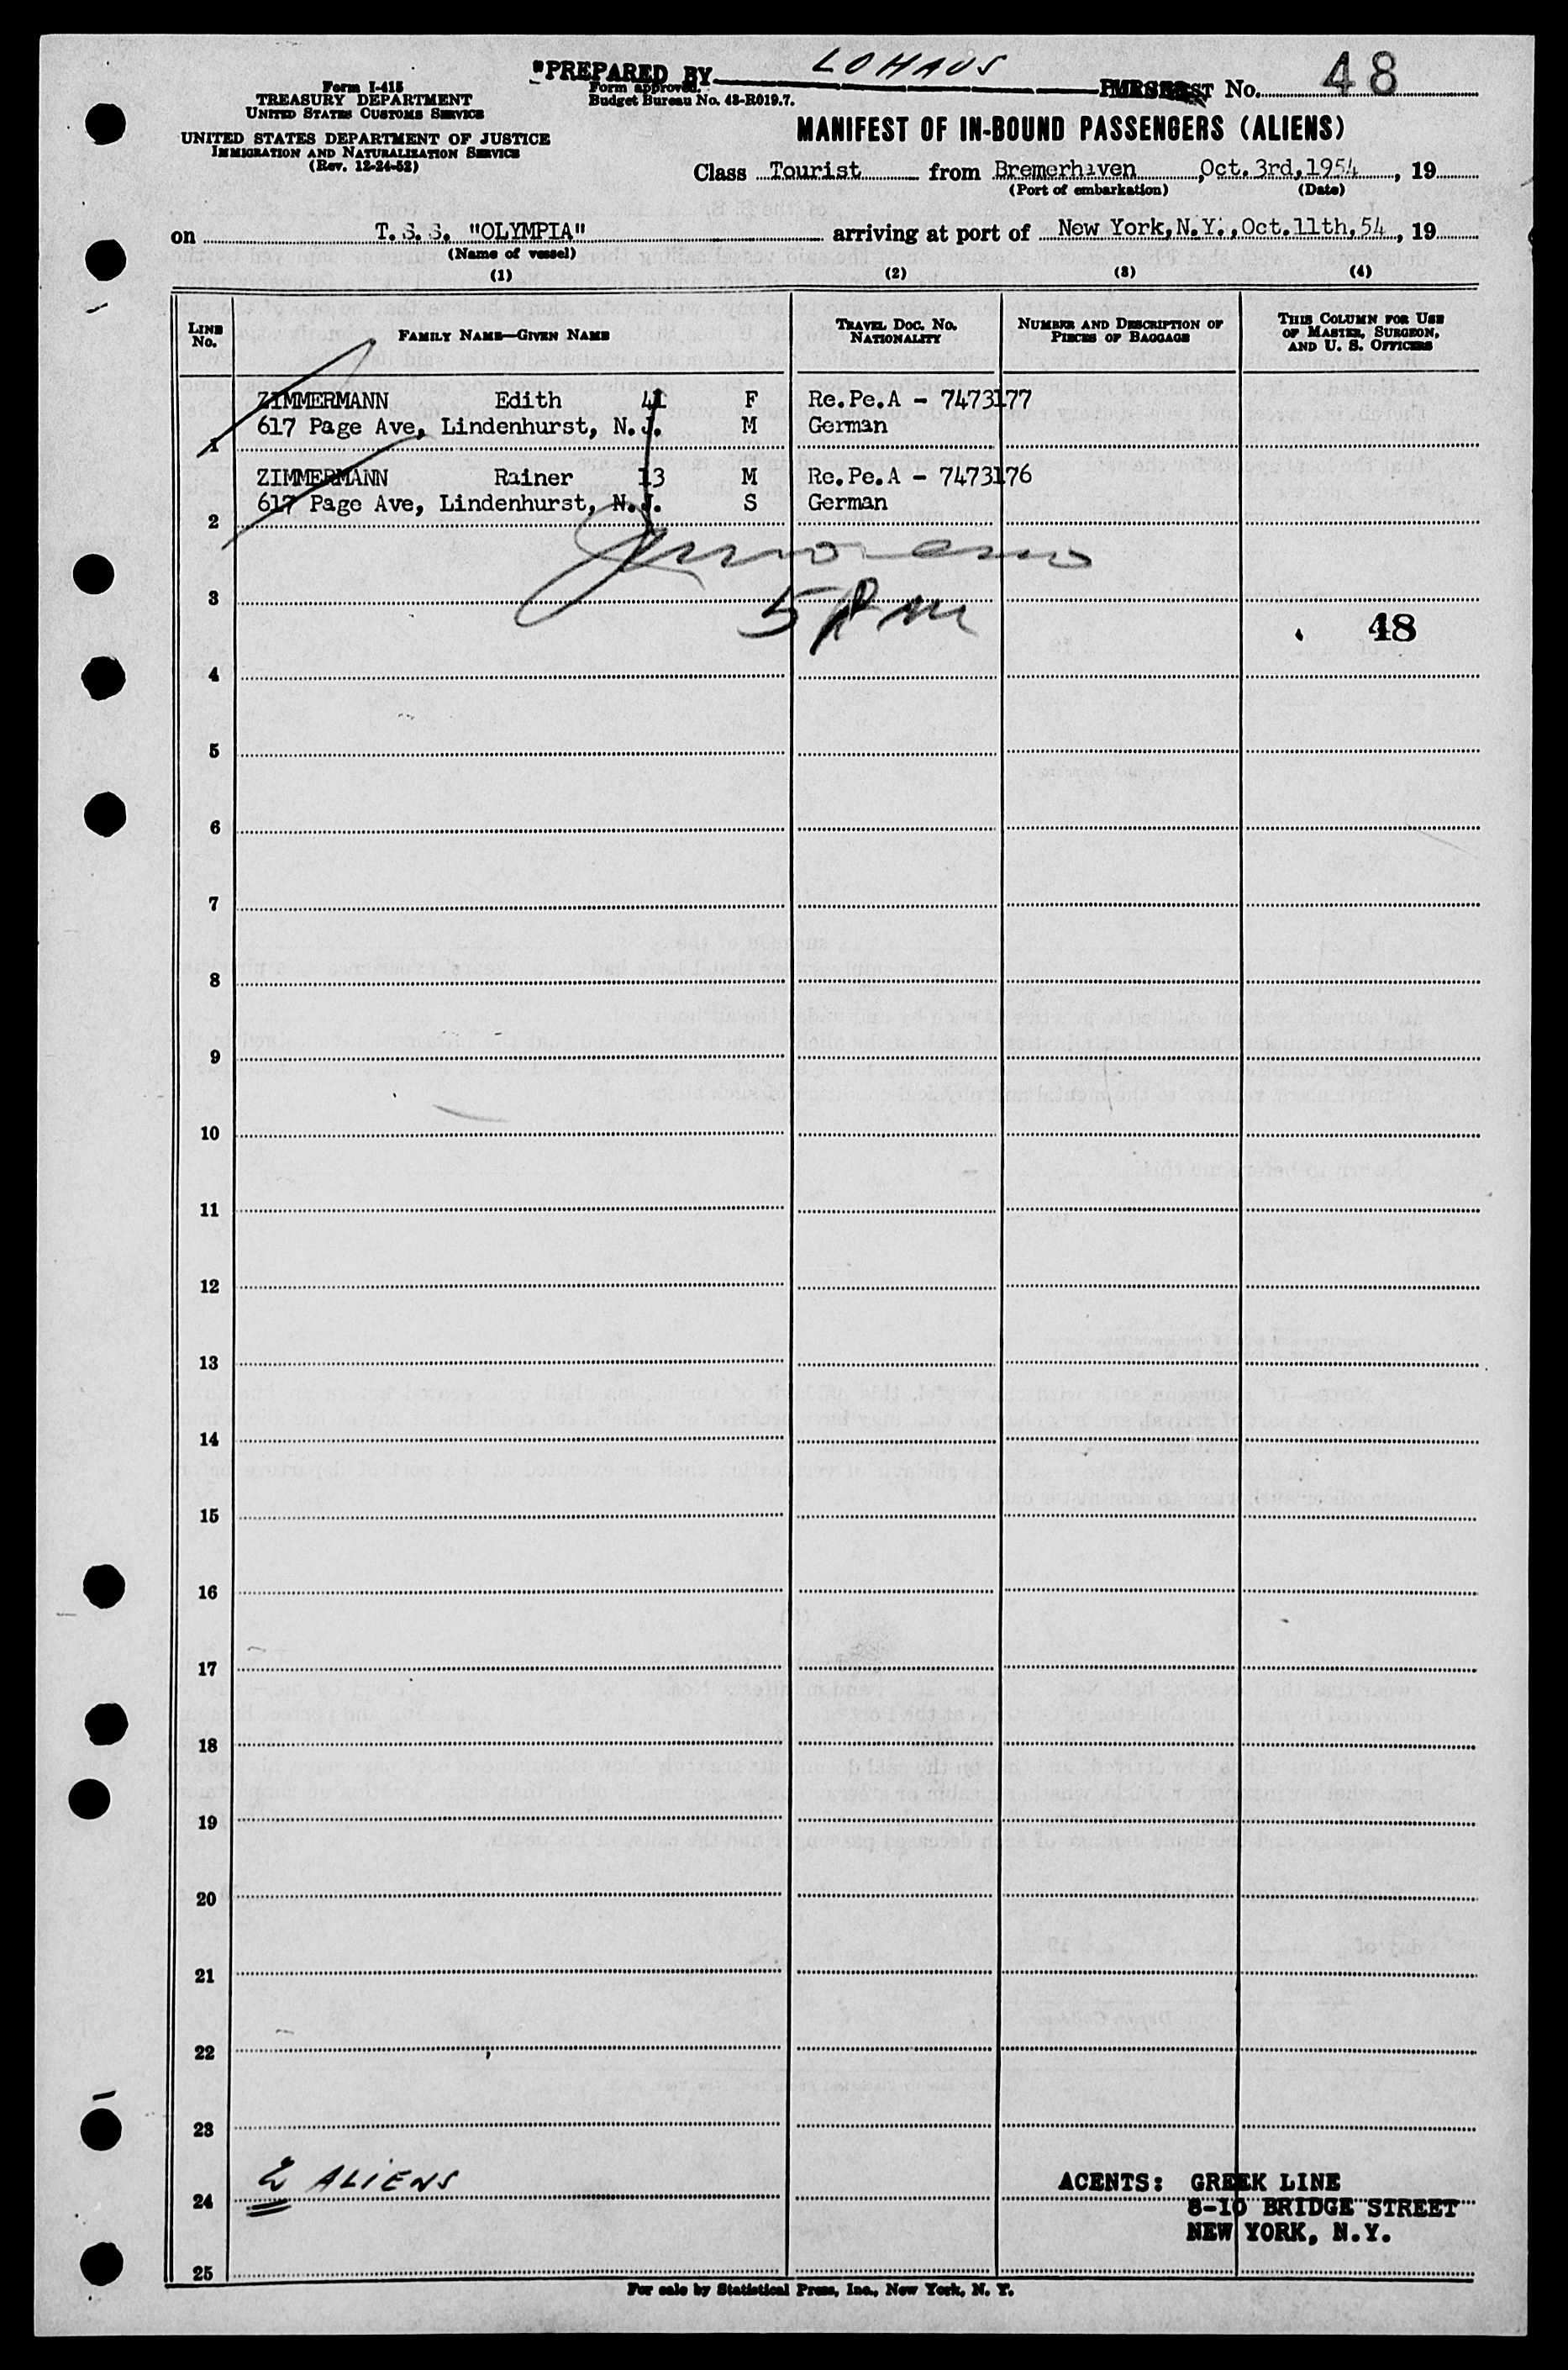 "PREPARED BY LOHAUS
Form I-415
TREASURY DEPARTMENT
UNITED STATES CUSTOMS SERVICE
UNITED STATES DEPARTMENT OF JUSTICE
IMMIGRATION AND NATURALIZATION SERVICE
(Rev. 12-24-52)
Form approved.
Budget Bureau No. 43-R019.7.
No. 48
MANIFEST OF IN-BOUND PASSENGERS (ALIENS)
Class Tourist from Bremerhaven, Oct. 3rd, 1954, 19
(Port of embarkation) (Date)
on T. S. S. "OLYMPIA" arriving at port of New York, N.Y., Oct. 11th, 54, 19
(Name of vessel)
(1) (2) (3) (4)
LINE No. FAMILY NAME—GIVEN NAME TRAVEL DOC. NO. NATIONALITY NUMBER AND DESCRIPTION OF PIECES OF BAGGAGE THIS COLUMN FOR USE OF MASTER, SURGEON, AND U. S. OFFICERS
ZIMMERMANN Edith 41 F Re.Pe.A - 7473177
617 Page Ave, Lindenhurst, N.J. M German
1
ZIMMERMANN Rainer 13 M Re.Pe.A - 7473176
617 Page Ave, Lindenhurst, N.J. S German
2
3
5 PM
48
4
5
6
7
8
9
10
11
12
13
14
15
16
17
18
19
20
21
22
23
2 ALIENS
24
AGENTS: GREEK LINE
8-10 BRIDGE STREET
NEW YORK, N.Y.
25
For sale by Statistical Press, Inc., New York, N. Y.